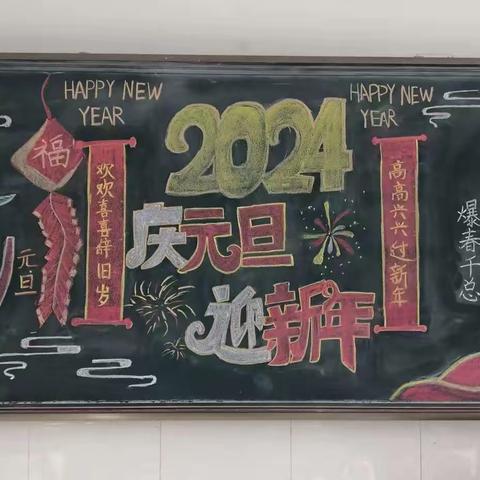 HAPPY NEW
YEAR
福
欢欢喜喜辞旧岁
元旦
2024
庆元旦
迎新年
HAPPY NEW
YEAR
高高兴兴过新年